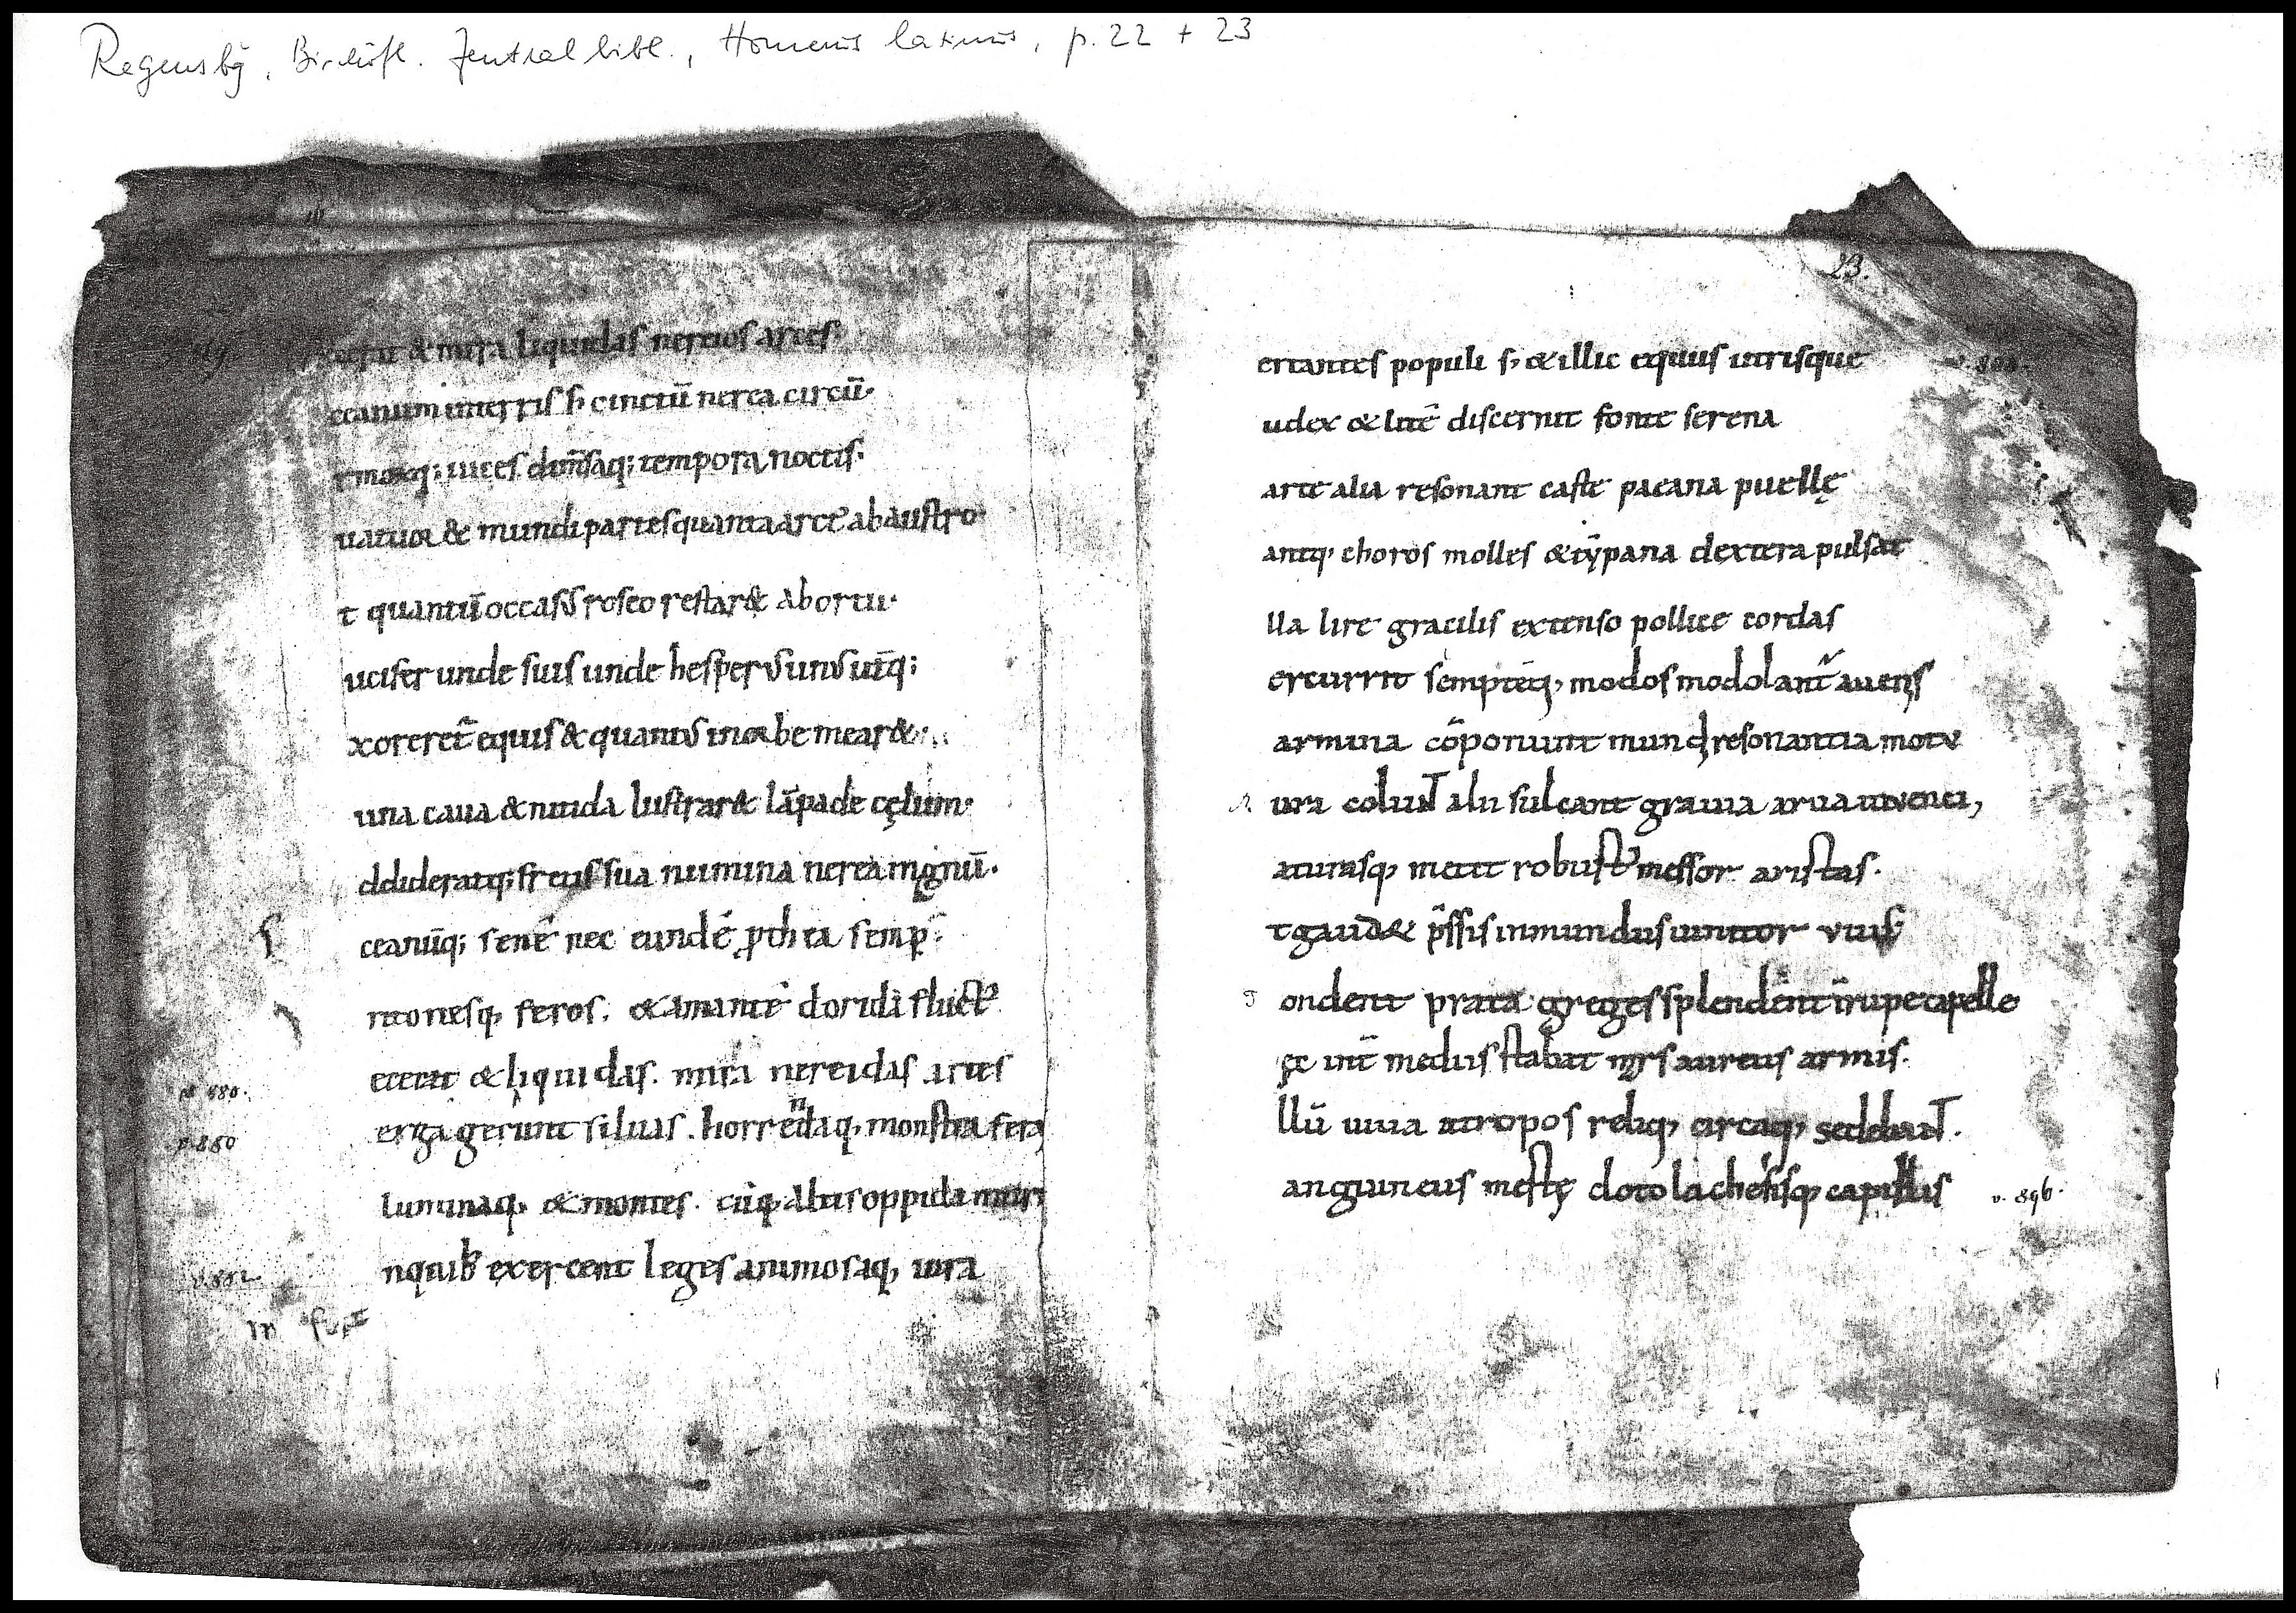 Regensbg, Bischöfl. Zentralbibl., Homerus latinus, p. 22 + 23
& mira liquidas nereos artes·
ceanum interris & cinctū nerea circū·
uices dimsaq; tempora noctis·
uatuor & mundi partes quanta arct᷒ abaustro·
t quantū occasus roseo restar& abortu·
ucifer unde suis unde hesperus unus utq;
xoreret̄ equis & quantus inorbe mear&·
una caua & nitida lustrar& lāpade cęlum·
ddideratq; fretis sua numina nerea mgnū·
ceanūq; senē nec eundē ꝓthea semp̄·
ritonesq, feros. & amantē doridā fluct᷒
ecerat & liquidas. mira nereidas artes
erra gerunt siluas. horrēdaq, monstra fera
luminaq, & montes. cūq, altis oppida muri
nquib exercent leges animosaq, iura
v. 880.
v. 880
v. 882
23.
ertantes populi s, & illic equus utrisque
udex & litē discernit fonte serena
arte alia resonant caste paeana puellę
antq, choros molles & tȳpana dextera pulsat
lla lire gracilis extenso pollice cordas
ercurrit septēq, modos modolant̄ auenis
armina cōponunt mundi resonantia motu
ura coluNT alii sulcant grauia arua iuuenci,
aturasq, metit robust᷒ messor aristas.
t gaud& p̄ssis inmundus uinitor vuis
ondent prata greges splendent īrupe capelle
ęc int̄ medius stabat mrs aureus armis.
llū uiua atropos reliq, circaq, sedebaNT.
anguineis mestę doto lachesisq, capillis
v. 896.